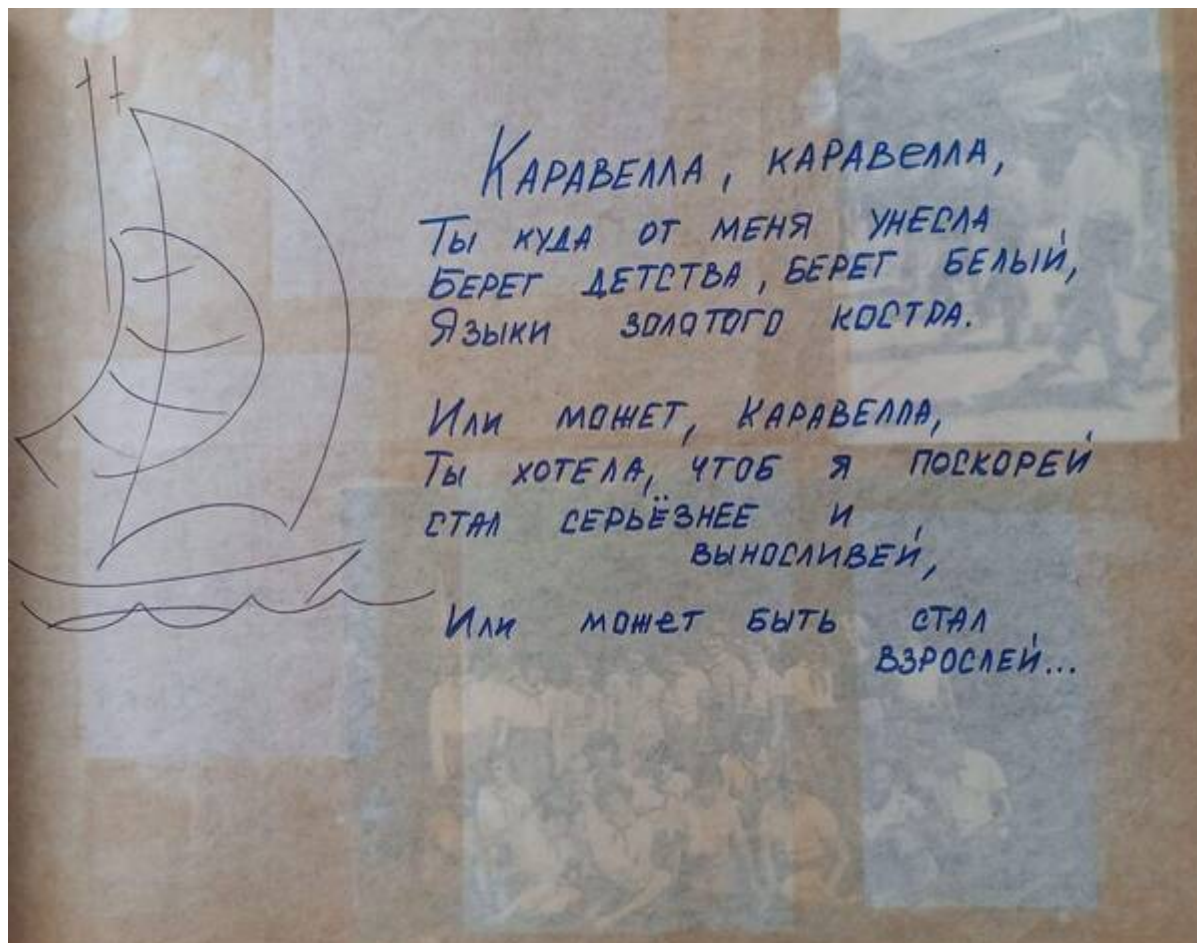 Каравелла, каравелла,
Ты куда от меня унесла
Берег детства, берег белый,
Языки золотого костра.
Или может, каравелла,
Ты хотела, чтоб я поскорей
стал серьёзнее и
выносливей,
Или может быть стал
взрослей...